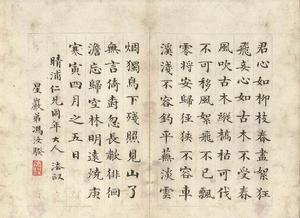 君心如柳枝春盡絮狂
飛妾心如古木縱槁枯可伐
風吹古木縱橫枯可伐
不可移風絮飛不已飄
零將安歸徑狹不容車
溪淺不容釣平蕪淡雲
烟獨鳥下殘照見山了
無言倚樹忽長歗徘徊
澹忘歸空林明遠燒庚
寅四月之五日
晴浦仁兄同年大人法政
星巖弟馮汝騤